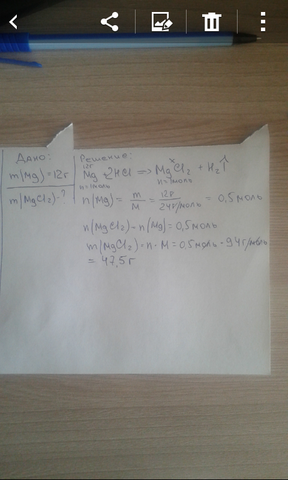 Дано:
m(Mg)=12г
m(MgCl2)-?
Решение:
12г x
Mg + 2HCl => MgCl2 + H2↑
n=1моль n=1моль
n(Mg) = m/M = 12г/24г/моль = 0,5 моль
n(MgCl2)=n(Mg)=0,5моль
m(MgCl2)=n·M=0,5моль·94г/моль
= 47,5г